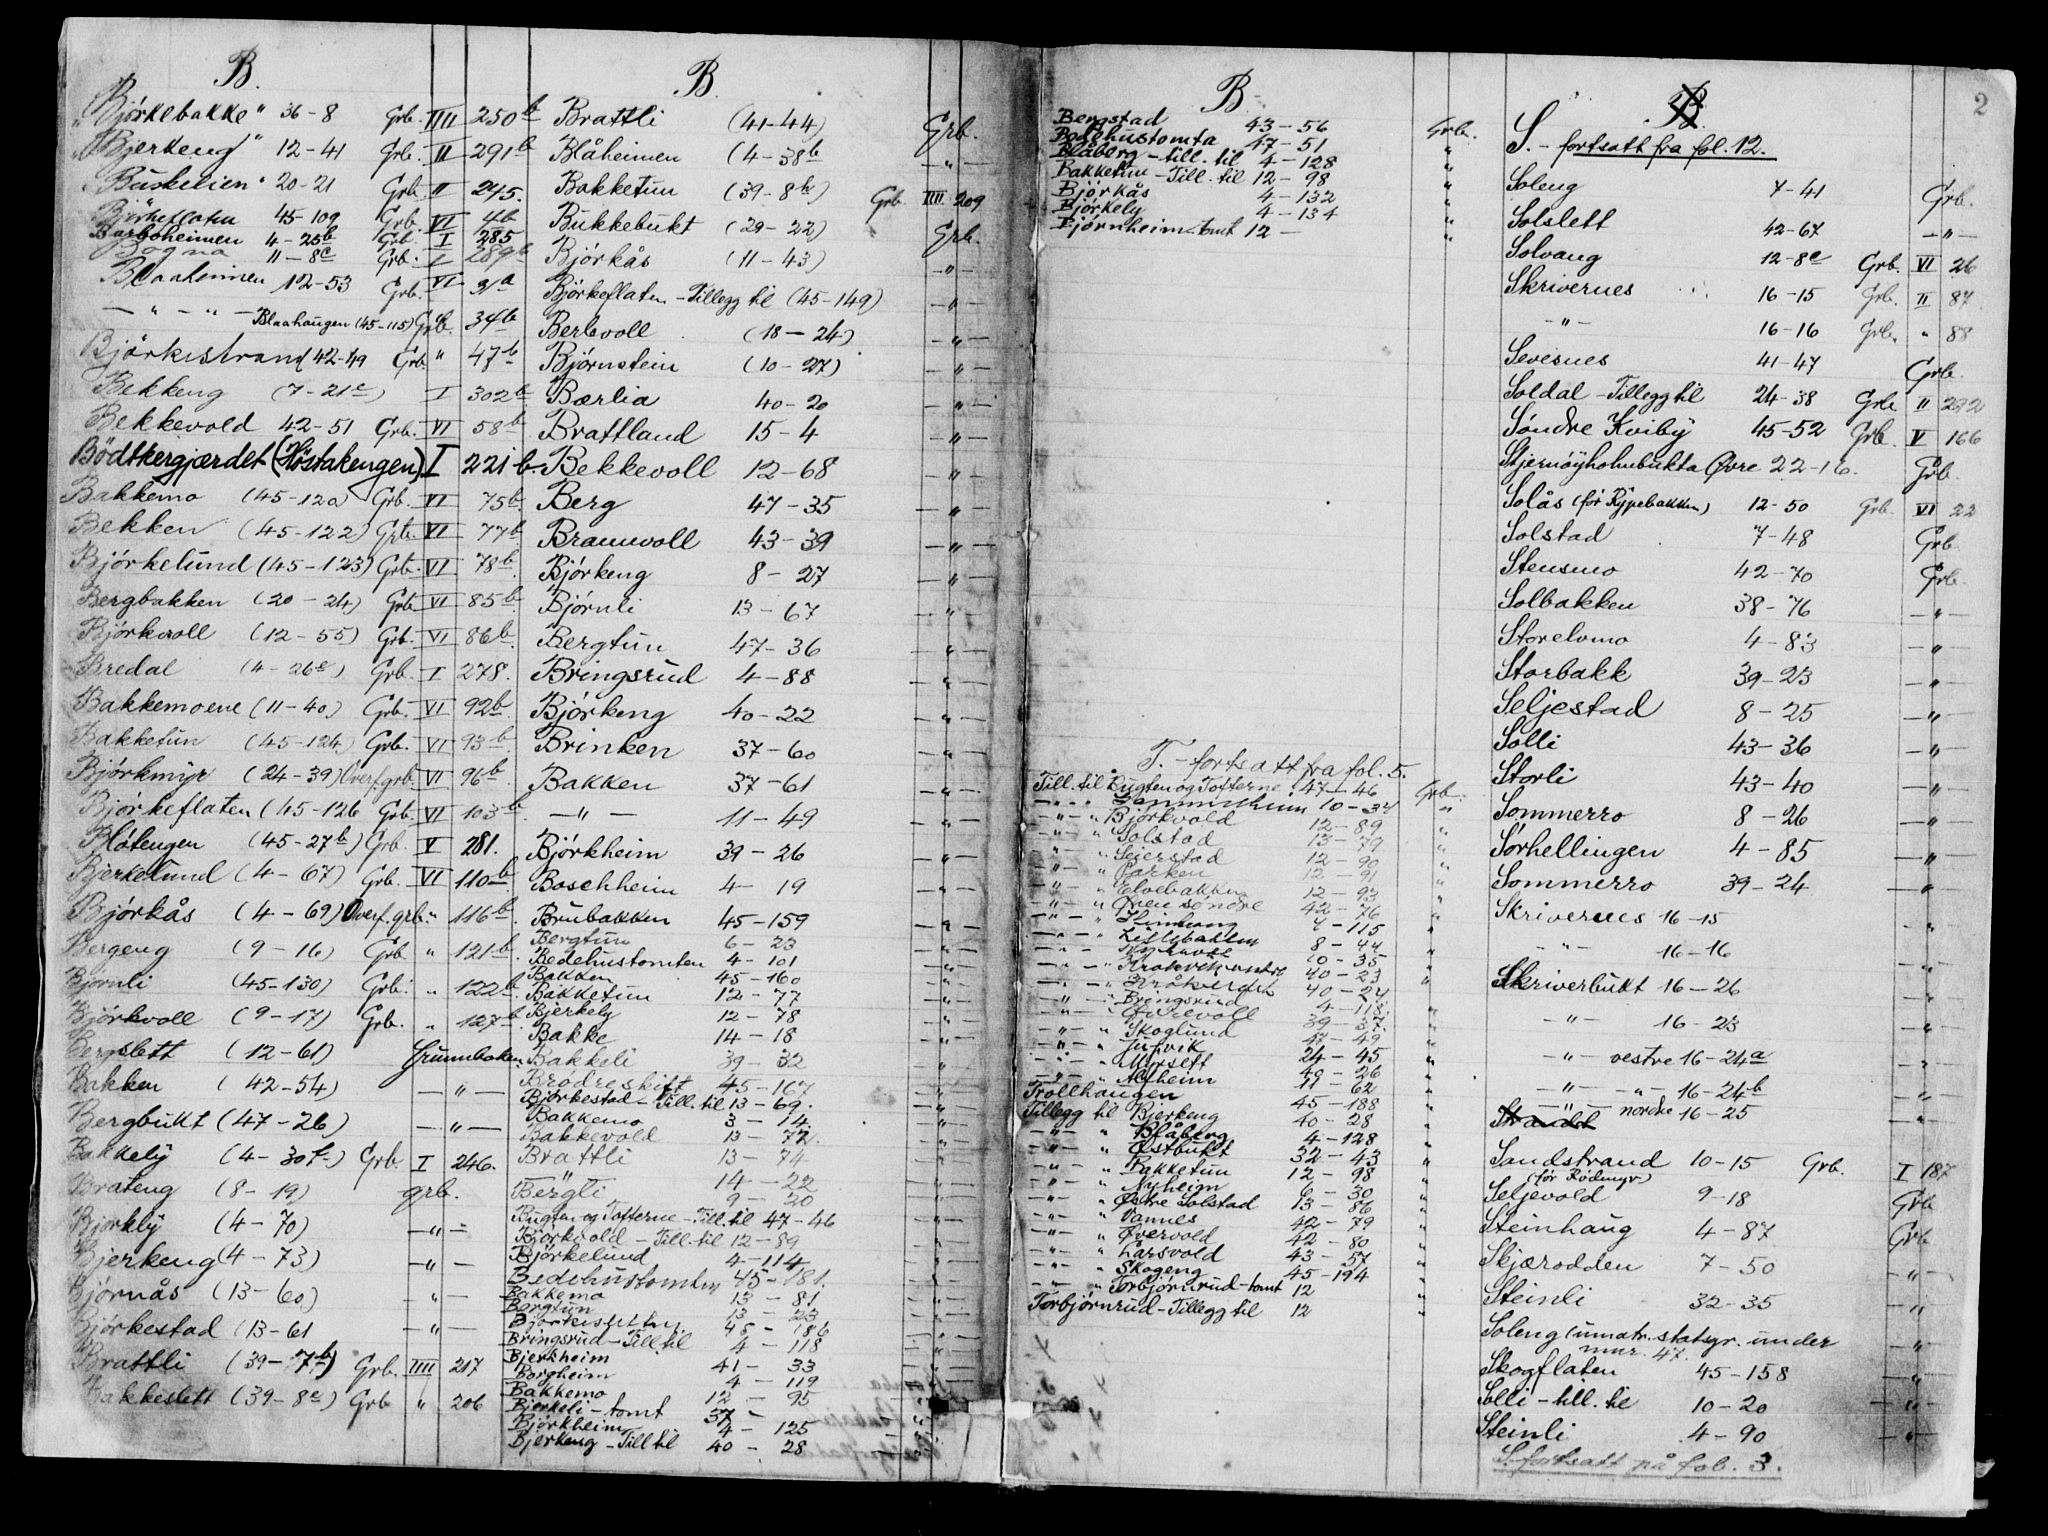 B.
"Bjørkebakke" 36-8 Grb. IIII 250b
"Bjerkeng" 12-41 Grb. II 291b
"Buskelien" 20-21 Grb. II 245.
Bjørkeflaten 45-109 Grb. VI 4b
Barboheimen 4-25b Grb. I 285
Bogna 11-8c Grb. I 289b
Blaaheimen 12-53 Grb. VI
— " — " — Blaahaugen (45-115) Grb. " 34b
Bjørkestrand 42-49 Grb. " 47b
Bekkeng (7-21c) I 302b
Bekkevold 42-51 Grb. VI 58b
Bödtkergjærdet (Höstakengen) I 221b
Bakkemo (45-120) Grb. VI 75b
Bekken (45-122) Grb. VI 77b
Bjórkelund (45-123) Grb. VI 78b
Bergbakken (20-24) Grb. VI 85b
Bjórkvoll (12-55) Grb. VI 86b
Bredal (4-26c) Grb. I 278.
Bakkemoene (11-40) Grb. VI 92b
Bakketun (45-124) Grb. VI 93b
Bjórkmyr (24-39) Overf.grb. VI 96b
Bjórkeflaten (45-126 Grb. VI 103b
Blåtengen (45-27b) Grb. V 281.
Bjerkelund (4-67) Grb. VI 110b
Bjórkås (4-69) Overf.grb. " 116b
Bergeng (9-16) Grb. " 121b
Bjórnli (45-130) Grb. " 122b
Bjórkvoll (9-17) Grb. " 127b
Bergslett (12-61) Grunnboken
Bakken (42-54) — " —
Bergbukt (47-26) — " —
Bakkely (4-30f) Grb. I 246.
Brateng (8-19) grb.
Bjorkly (4-70) — " —
Bjerkeng (4-73) — " —
Bjórnås (13-60) — " —
Bjórkestad (13-61 — " —
Brattli (39-7b) Grb. IIII 217
Bakkeslett (39-8c) Grb " 206
B.
Brattli (41-44) Grb.
Blåheimen (4-38b — " —
Bakketun (39-8b) Grb. IIII 209
Bukkebukt (29-22) Grb.
Bjórkås (11-43) — " —
Bjórkeflaten - Tillegg til (45-149) — " —
Berlevoll (18-24) — " —
Bjórnstein (10-27) — " —
Bærlia 40-20 — " —
Brattland 15-4 — " —
Bekkevoll 12-68 — " —
Berg 47-35 — " —
Bramvoll 43-39 — " —
Bjórkeng 8-27 — " —
Bjórnli 13-67 — " —
Bergtun 47-36 — " —
Bringsrud 4-88 — " —
Bjórkeng 40-22 — " —
Brinken 37-60 — " —
Bakken 37-61 — " —
— " — 11-49 — " —
Bjórkheim 39-26 — " —
Boschheim 4-19 — " —
Brubakken 45-159 — " —
Bergtun 6-23
Bedehustomten 4-101
Bakken 45-160
Bakketun 12-77
Bjerkely 12-78
Bakke 14-18
Bakkeli 39-32
Brodreskift 45-167
Bjórkestad - Till. til 13-69.
Bakkemo 3-14
Bakkevold 13-72.
Brattli 13-74
" 14-22
Bergli 9-20
Bugten og Tofterne - Till. til 47-46
Bjórkvold - Till. til 12-89
Bjórkelund 4-114
Bedehustomten 45-181.
Bakkemo 13-81
Borgtun 13-23
45-186
Bringsrud - Till til 4-118
Bjerkheim 41-33
Borgheim 4-119
Bakkemo 12-95
Bjerkeli - tomt 37-
Bjórkheim 4-125
Bjerkeng - Till til 40-28
B
Bergstad 43-56 Grb.
Bodehustomta 47-51 "
Blåberg - till. til 4-128 "
Bakketun - Till. til 12-98 "
Bjórkås 4-132 "
Bjórkely 4-134 "
Bjórnheim - tomt 12- "
T. - fortsatt fra fol. 5.
Till. til Bugten og Tofterne 47-46 Grb.
— " — " 10-34 "
— " — " Bjórkvold 12-89
— " — " Solstad 13-79 "
— " — " Seierstad 12-90 "
— " — " Parken 12-91
— " — " Elvebakken 12-93 "
— " — " Øven søndre 42-76
— " — " 4-115 "
— " — " 8-44 "
— " — " 10-35 "
— " — " 40-23
— " — " 40-24 "
— " — " Bringsrud 4-118.
— " — " 39-37.
— " — " Skoglund 47-49 "
— " — " 24-45 "
— " — " Myrsett 40-26 "
— " — " Alfheim 41-62
Trollhaugen 45-188 "
Tillegg til Bjerkeng 40-28 "
— " — " Blåberg 4-128 "
— " — " Østbukt 32-43 "
— " — " Bakketun 12-98 "
— " — " Nyheim 6-30 "
— " — " Østre Solstad 13-86 "
— " — " Vannes 42-79 "
— " — " Øvervold 42-80 "
— " — " Larsvold 43-57 "
— " — " Skogeng 45-194 "
— " — " Torbjórnrud - tomt 12 "
Torbjórnrud - Tillegg til 12 "
B. 2
S. - fortsatt fra fol. 12.
Soleng 7-41 Grb.
Solslett 42-67 — " —
Solvang 12-8e Grb. VI 26
Skrivernes 16-15 Grb. II 87.
— " — 16-16 Grb. " 88
Sevesnes 41-47 Grb.
Soldal - Tillegg til 24-38 Grb. II 292
Sóndre Kviby 45-52 Grb. V 166
Stjernöyholmbukta Øvre 22-16. Grb.
Solås (för Rypebakken) 12-50 Grb. VI 22
Solstad 7-48 Grb
Stensmo 42-70 Grb.
Solbakken 38-76 — " —
Storelvmo 4-83 — " —
Storbakk 39-23 — " —
Seljestad 8-25 — " —
Solli 43-36 — " —
Storli 43-40 — " —
Sommerro 8-26 — " —
Sórhellingen 4-85 — " —
Sommerro 39-24 — " —
Skrivernes 16-15 "
— " — 16-16 "
Skriverbukt 16-26 — " —
— " — 16-23 — " —
— " — vestre 16-24a "
— " — — " — 16-24b — " —
Strandet — " — nordre 16-25 — " —
Sandstrand 10-15 Grb. I 187
(för Rødmyr)
Seljevold 9-18 Grb
Steinhaug 4-87 Grb
Skjærodden 7-50 — " —
Steinli 32-35 — " —
Soleng (umatr. statsgr. under — " —
mnr. 47.
Skogflaten 45-158 — " —
Solli - till. til 10-20 — " —
Steinli 4-90 — " —
S. fortsatt på fol. 3.